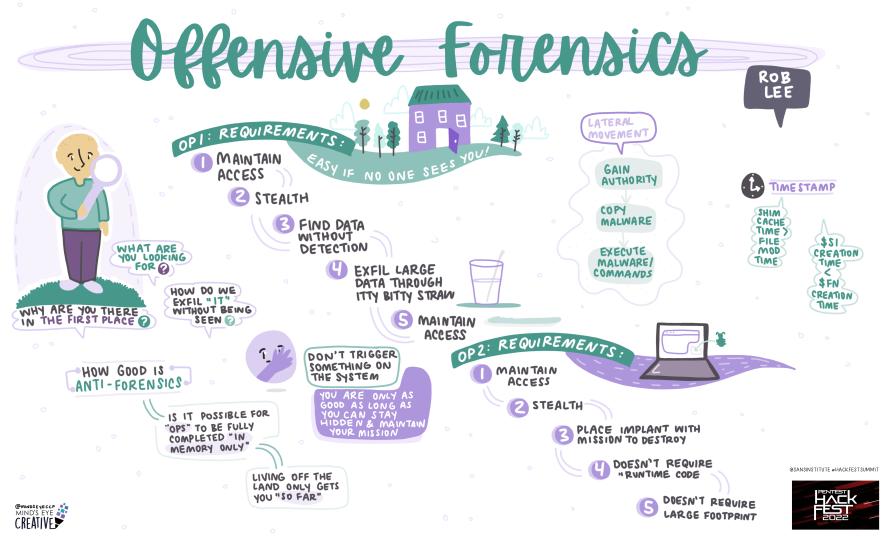 Offensive Forensics
ROB
LEE
OP1: REQUIREMENTS:
EASY IF NO ONE SEES YOU!
1 MAINTAIN
ACCESS
2 STEALTH
3 FIND DATA
WITHOUT
DETECTION
4 EXFIL LARGE
DATA THROUGH
ITTY BITTY STRAW
5 MAINTAIN
ACCESS
LATERAL
MOVEMENT
GAIN
AUTHORITY
COPY
MALWARE
EXECUTE
MALWARE/
COMMANDS
TIMESTAMP
SHIM
CACHE
TIME >
FILE
MOD
TIME
$SI
CREATION
TIME
<
$FN
CREATION
TIME
WHAT ARE
YOU LOOKING
FOR?
WHY ARE YOU THERE
IN THE FIRST PLACE?
HOW DO WE
EXFIL "IT"
WITHOUT BEING
SEEN?
HOW GOOD IS
ANTI-FORENSICS
DON'T TRIGGER
SOMETHING ON
THE SYSTEM
YOU ARE ONLY AS
GOOD AS LONG AS
YOU CAN STAY
HIDDEN & MAINTAIN
YOUR MISSION
IS IT POSSIBLE FOR
"OPS" TO BE FULLY
COMPLETED "IN
MEMORY ONLY"
LIVING OFF THE
LAND ONLY GETS
YOU "SO FAR"
OP2: REQUIREMENTS:
1 MAINTAIN
ACCESS
2 STEALTH
3 PLACE IMPLANT WITH
MISSION TO DESTROY
4 DOESN'T REQUIRE
"RUNTIME CODE
5 DOESN'T REQUIRE
LARGE FOOTPRINT
MIND'S EYE
CREATIVE
@SANSINSTITUTE #HACKFESTSUMMIT
PENTEST
HACK
FEST
2022